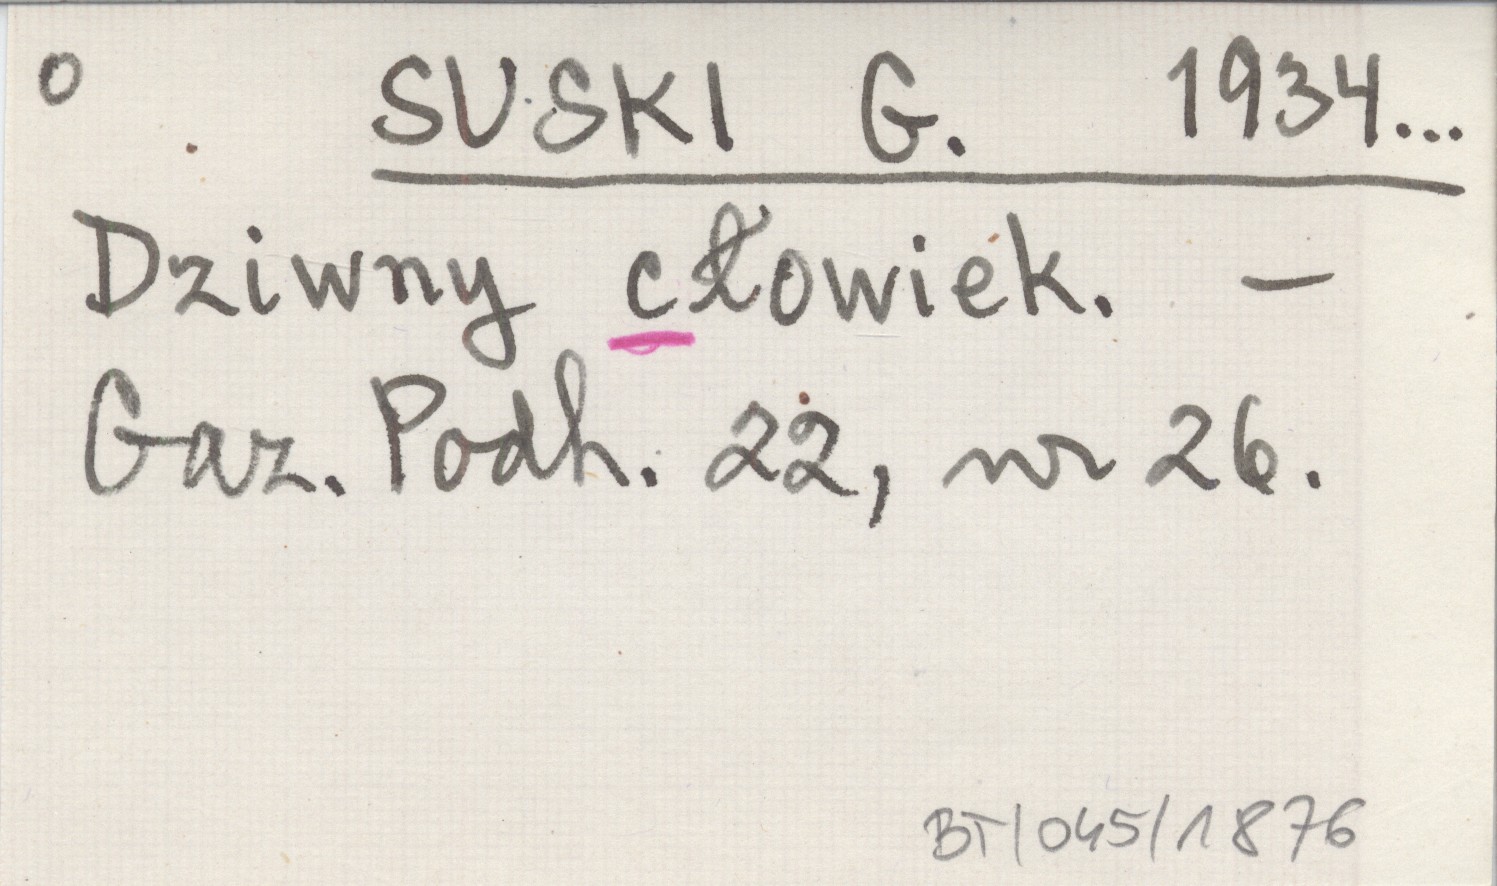 o SUSKI G. 1934...
Dziwny cłowiek. —
Gaz. Podh. 22, nr 26.
BT/045/1876